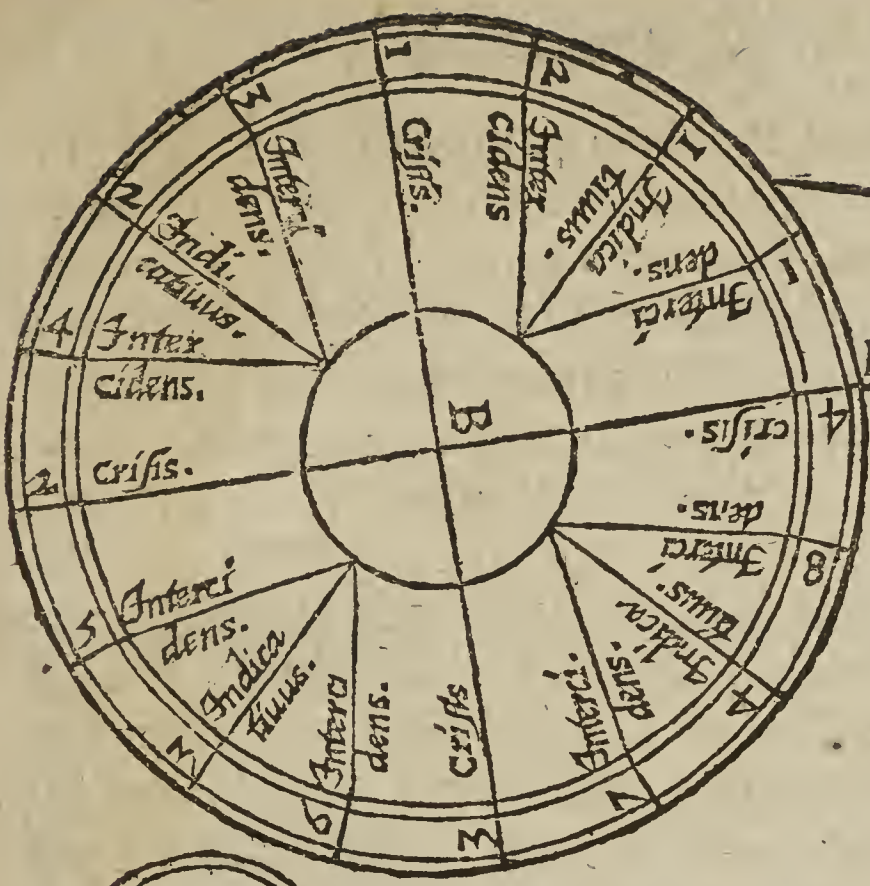 1
Interci
dens.
1
Indica
tiuus.
2
Inter
cidens
1
Criſis.
3
Interci
dens.
2
Indi.
catiuus.
4
Inter
cidens.
2
criſis.
5
Interci
dens.
3
Indica
tiuus.
6
Interci
dens.
3
Criſis
7
Interci.
dens
4
Indica
tiuus.
8
Interci
dens.
4
criſis.
B